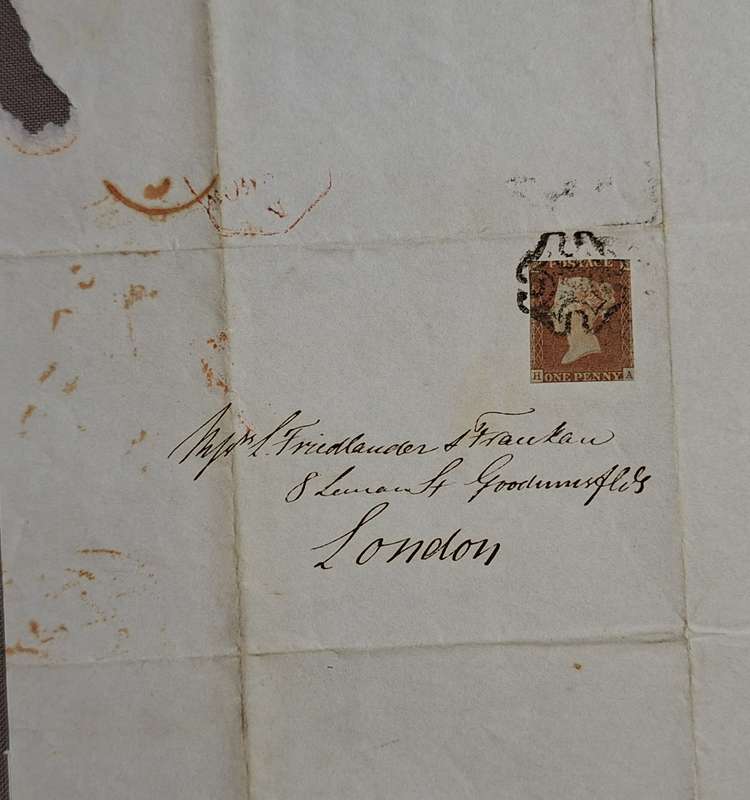 POSTAGE
H ONE PENNY A
Messrs L. Friedlander & Frankau
8 Leman St Goodmansflds
London